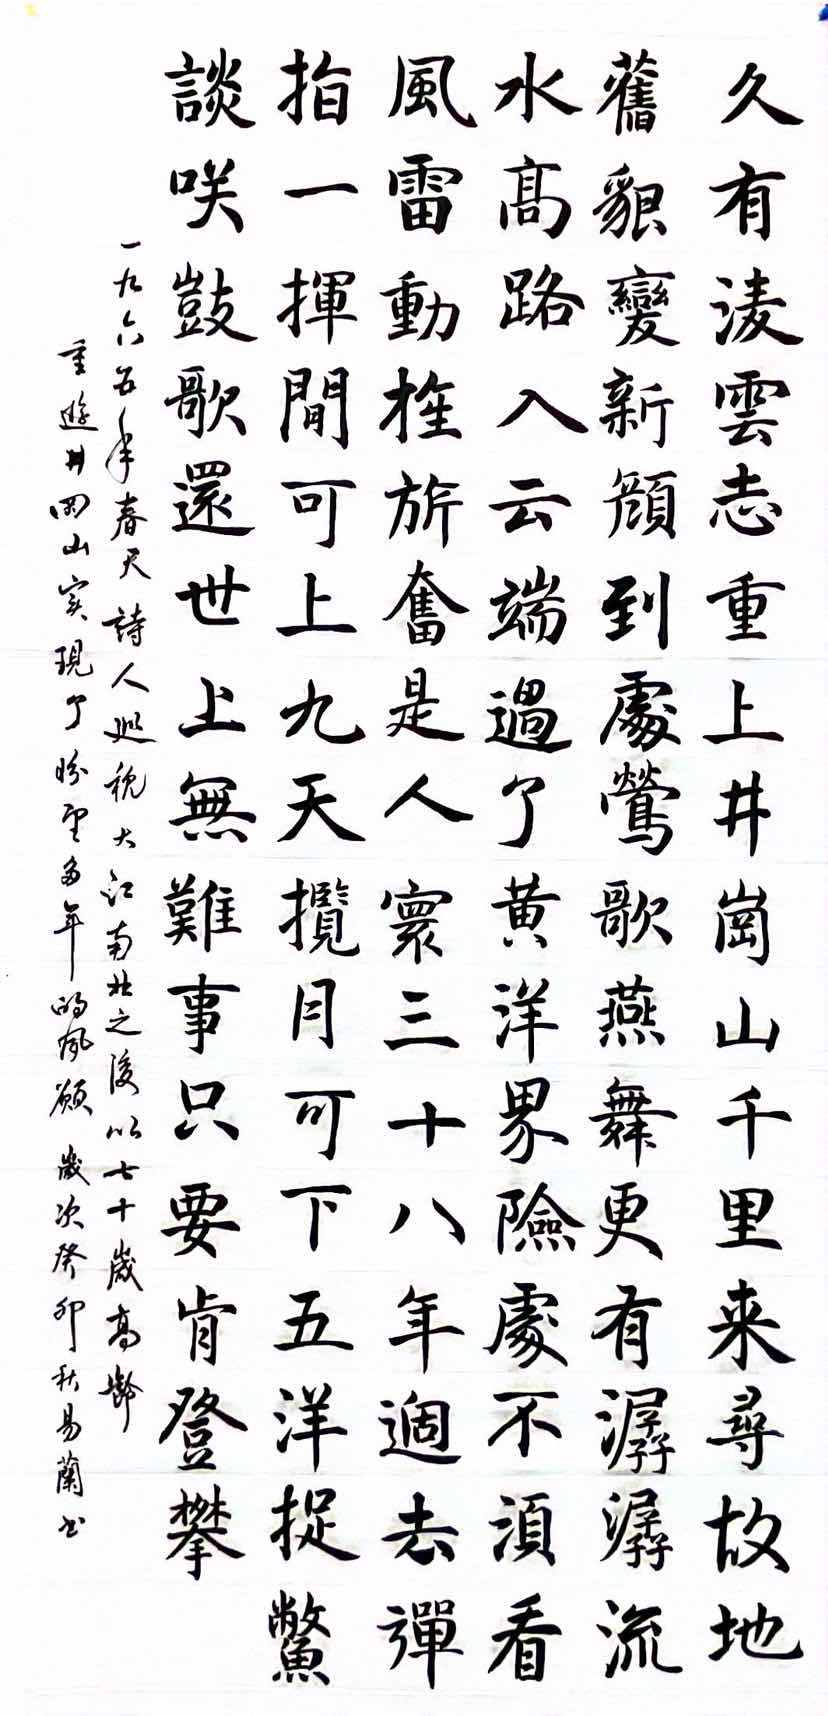 久有淩雲志重上井崗山千里来尋故地
舊貌變新顔到處鶯歌燕舞更有潺潺流
水高路入云端過了黄洋界險處不須看
風雷動旌旂奮是人寰三十八年過去彈
指一揮間可上九天攬月可下五洋捉鱉
談咲鼓歌還世上無難事只要肯登攀
一九六五年春天詩人巡視大江南北之後以七十歲高齡
重遊井岡山实現了盼望多年的夙願 歲次癸卯秋易蘭书